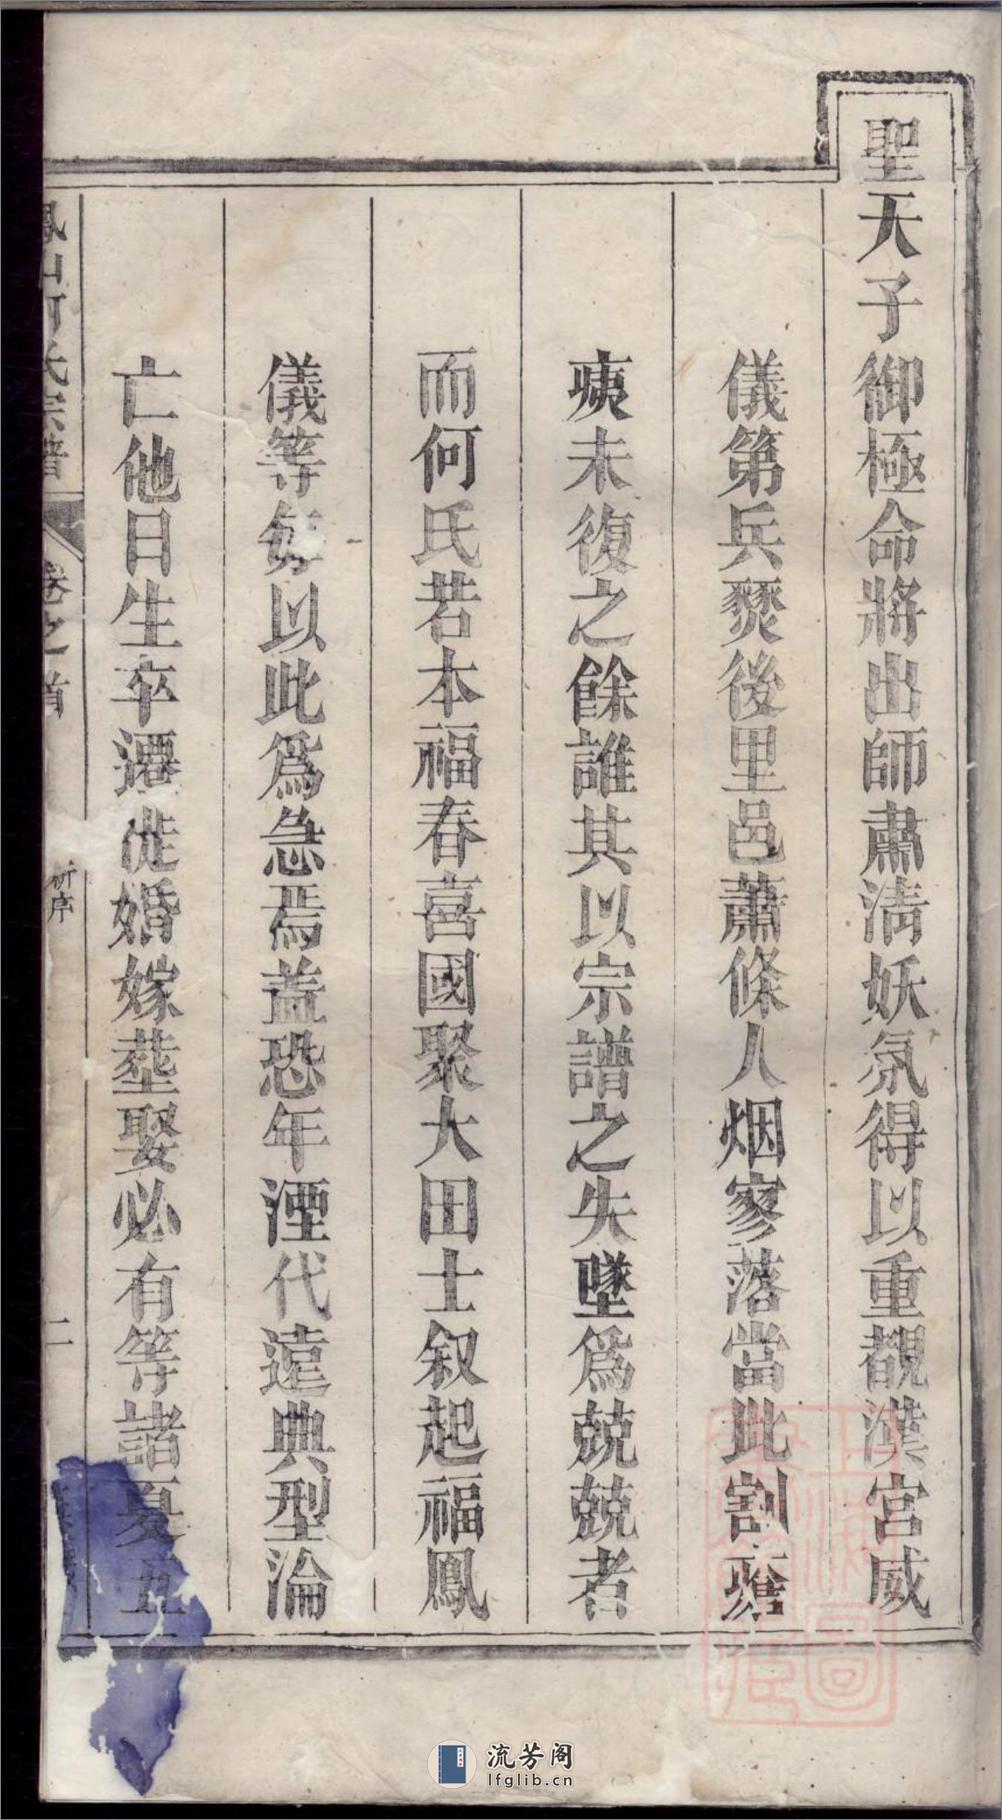 聖天子御極命將出師肅清妖氛得以重覩漢宮威
儀第兵燹後里邑蕭條人烟寥落當此割
痍未復之餘誰其以宗譜之失墜爲兢兢者
而何氏若本福春喜國聚大田士叙起福鳳
儀等每以此爲急焉盖恐年湮代遠典型淪
亡他日生卒遷徙婚嫁塟娶必有等諸夏五
鳳山何氏宗譜
卷之首
新序
二
流芳阁
lfglib.cn